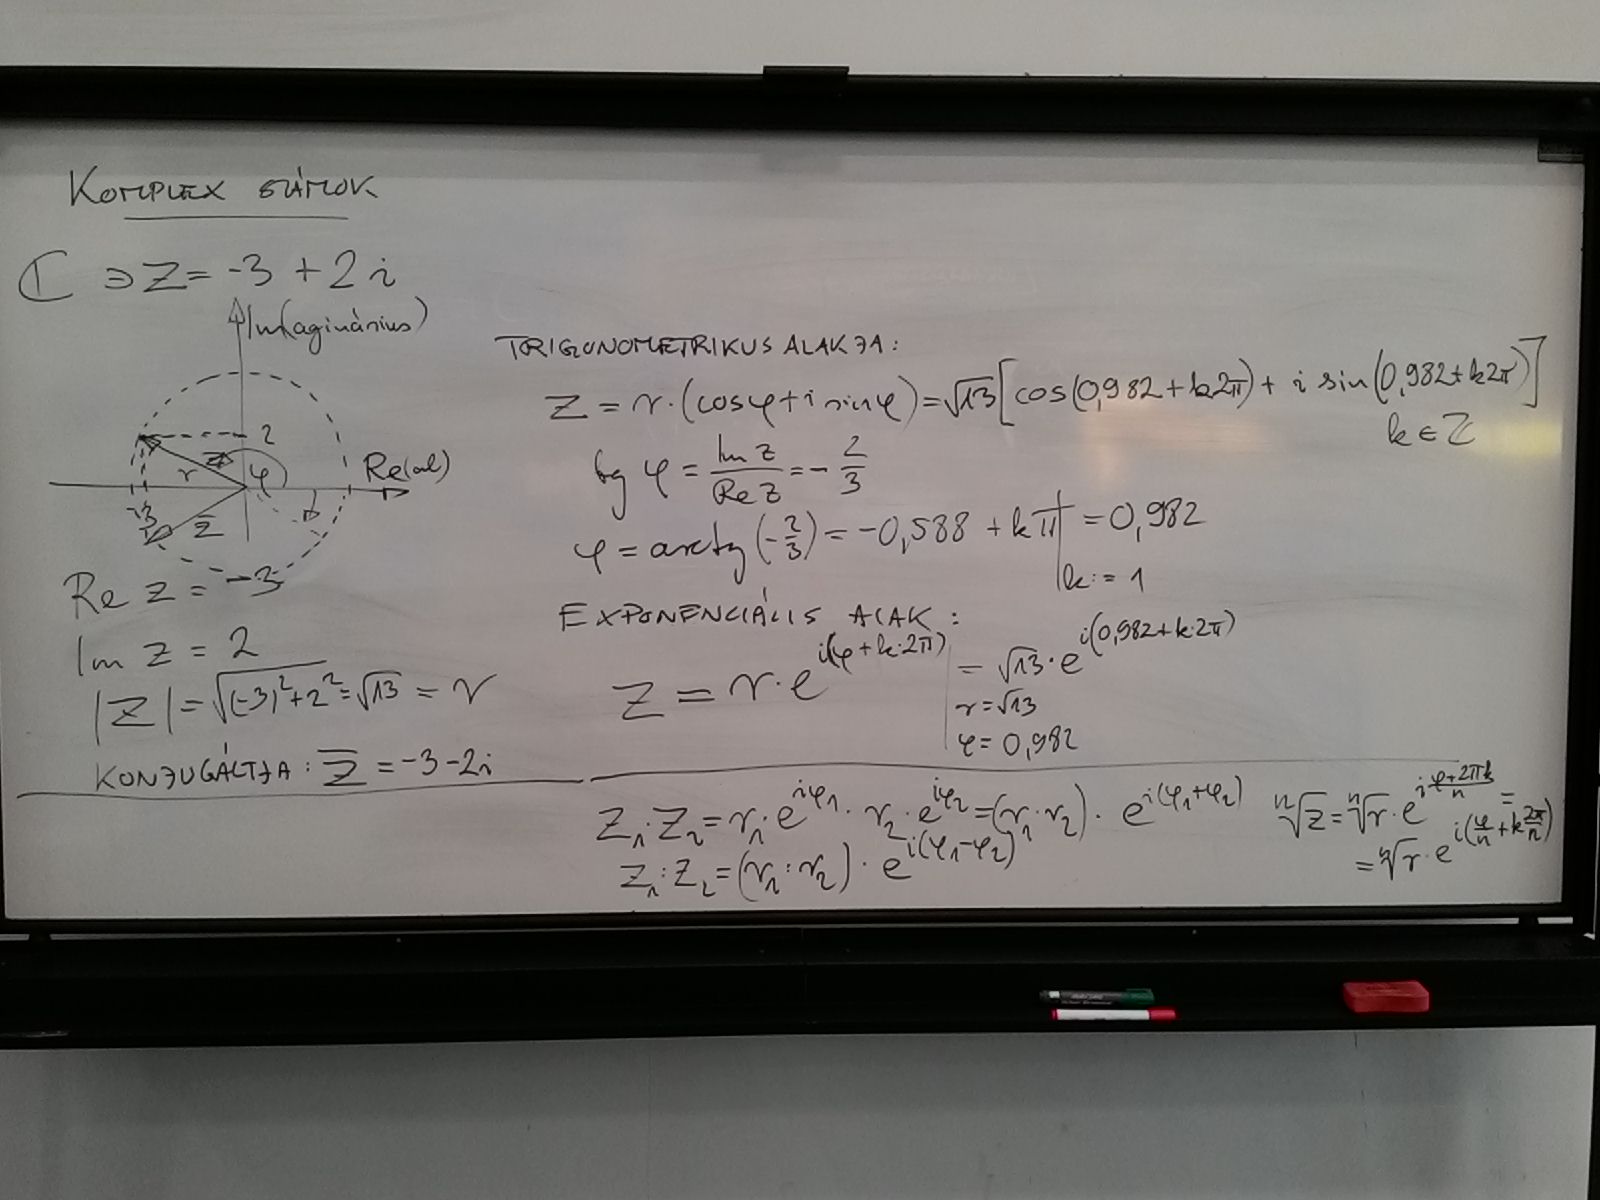 KOMPLEX SZÁMOK
ℂ ∋ Z = -3 + 2i
Im(aginárius)
2
Re(al)
r
z
φ
-3
z̅
Re z = -3
Im z = 2
|Z| = √((-3)²+2²) = √13 = r
KONJUGÁLTJA: z̅ = -3-2i
TRIGONOMETRIKUS ALAKJA:
Z = r·(cosφ + i sinφ) = √13 [cos(0,982 + k2π) + i sin(0,982 + k2π)]
k ∈ ℤ
tg φ = Im z / Re z = - 2/3
φ = arctg(-2/3) = -0,588 + kπ | = 0,982
k := 1
EXPONENCIÁLIS ALAK:
Z = r·e^{i(φ+k·2π)} | = √13·e^{i(0,982+k·2π)}
r = √13
φ = 0,982
Z₁·Z₂ = r₁·e^{iφ₁}·r₂·e^{iφ₂} = (r₁·r₂)·e^{i(φ₁+φ₂)}
Z₁:Z₂ = (r₁:r₂)·e^{i(φ₁-φ₂)}
ⁿ√z = ⁿ√r·e^{i (φ+2πk)/n} =
= ⁿ√r·e^{i(φ/n + k 2π/n)}